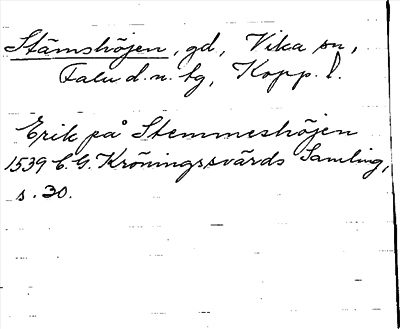 Stämshöjen, gd, Vika sn,
Falu d.n. tg, Kopp. l.
Erik på Stemmeshöjen
1539 C. G. Kröningssvärds Samling,
s. 30.